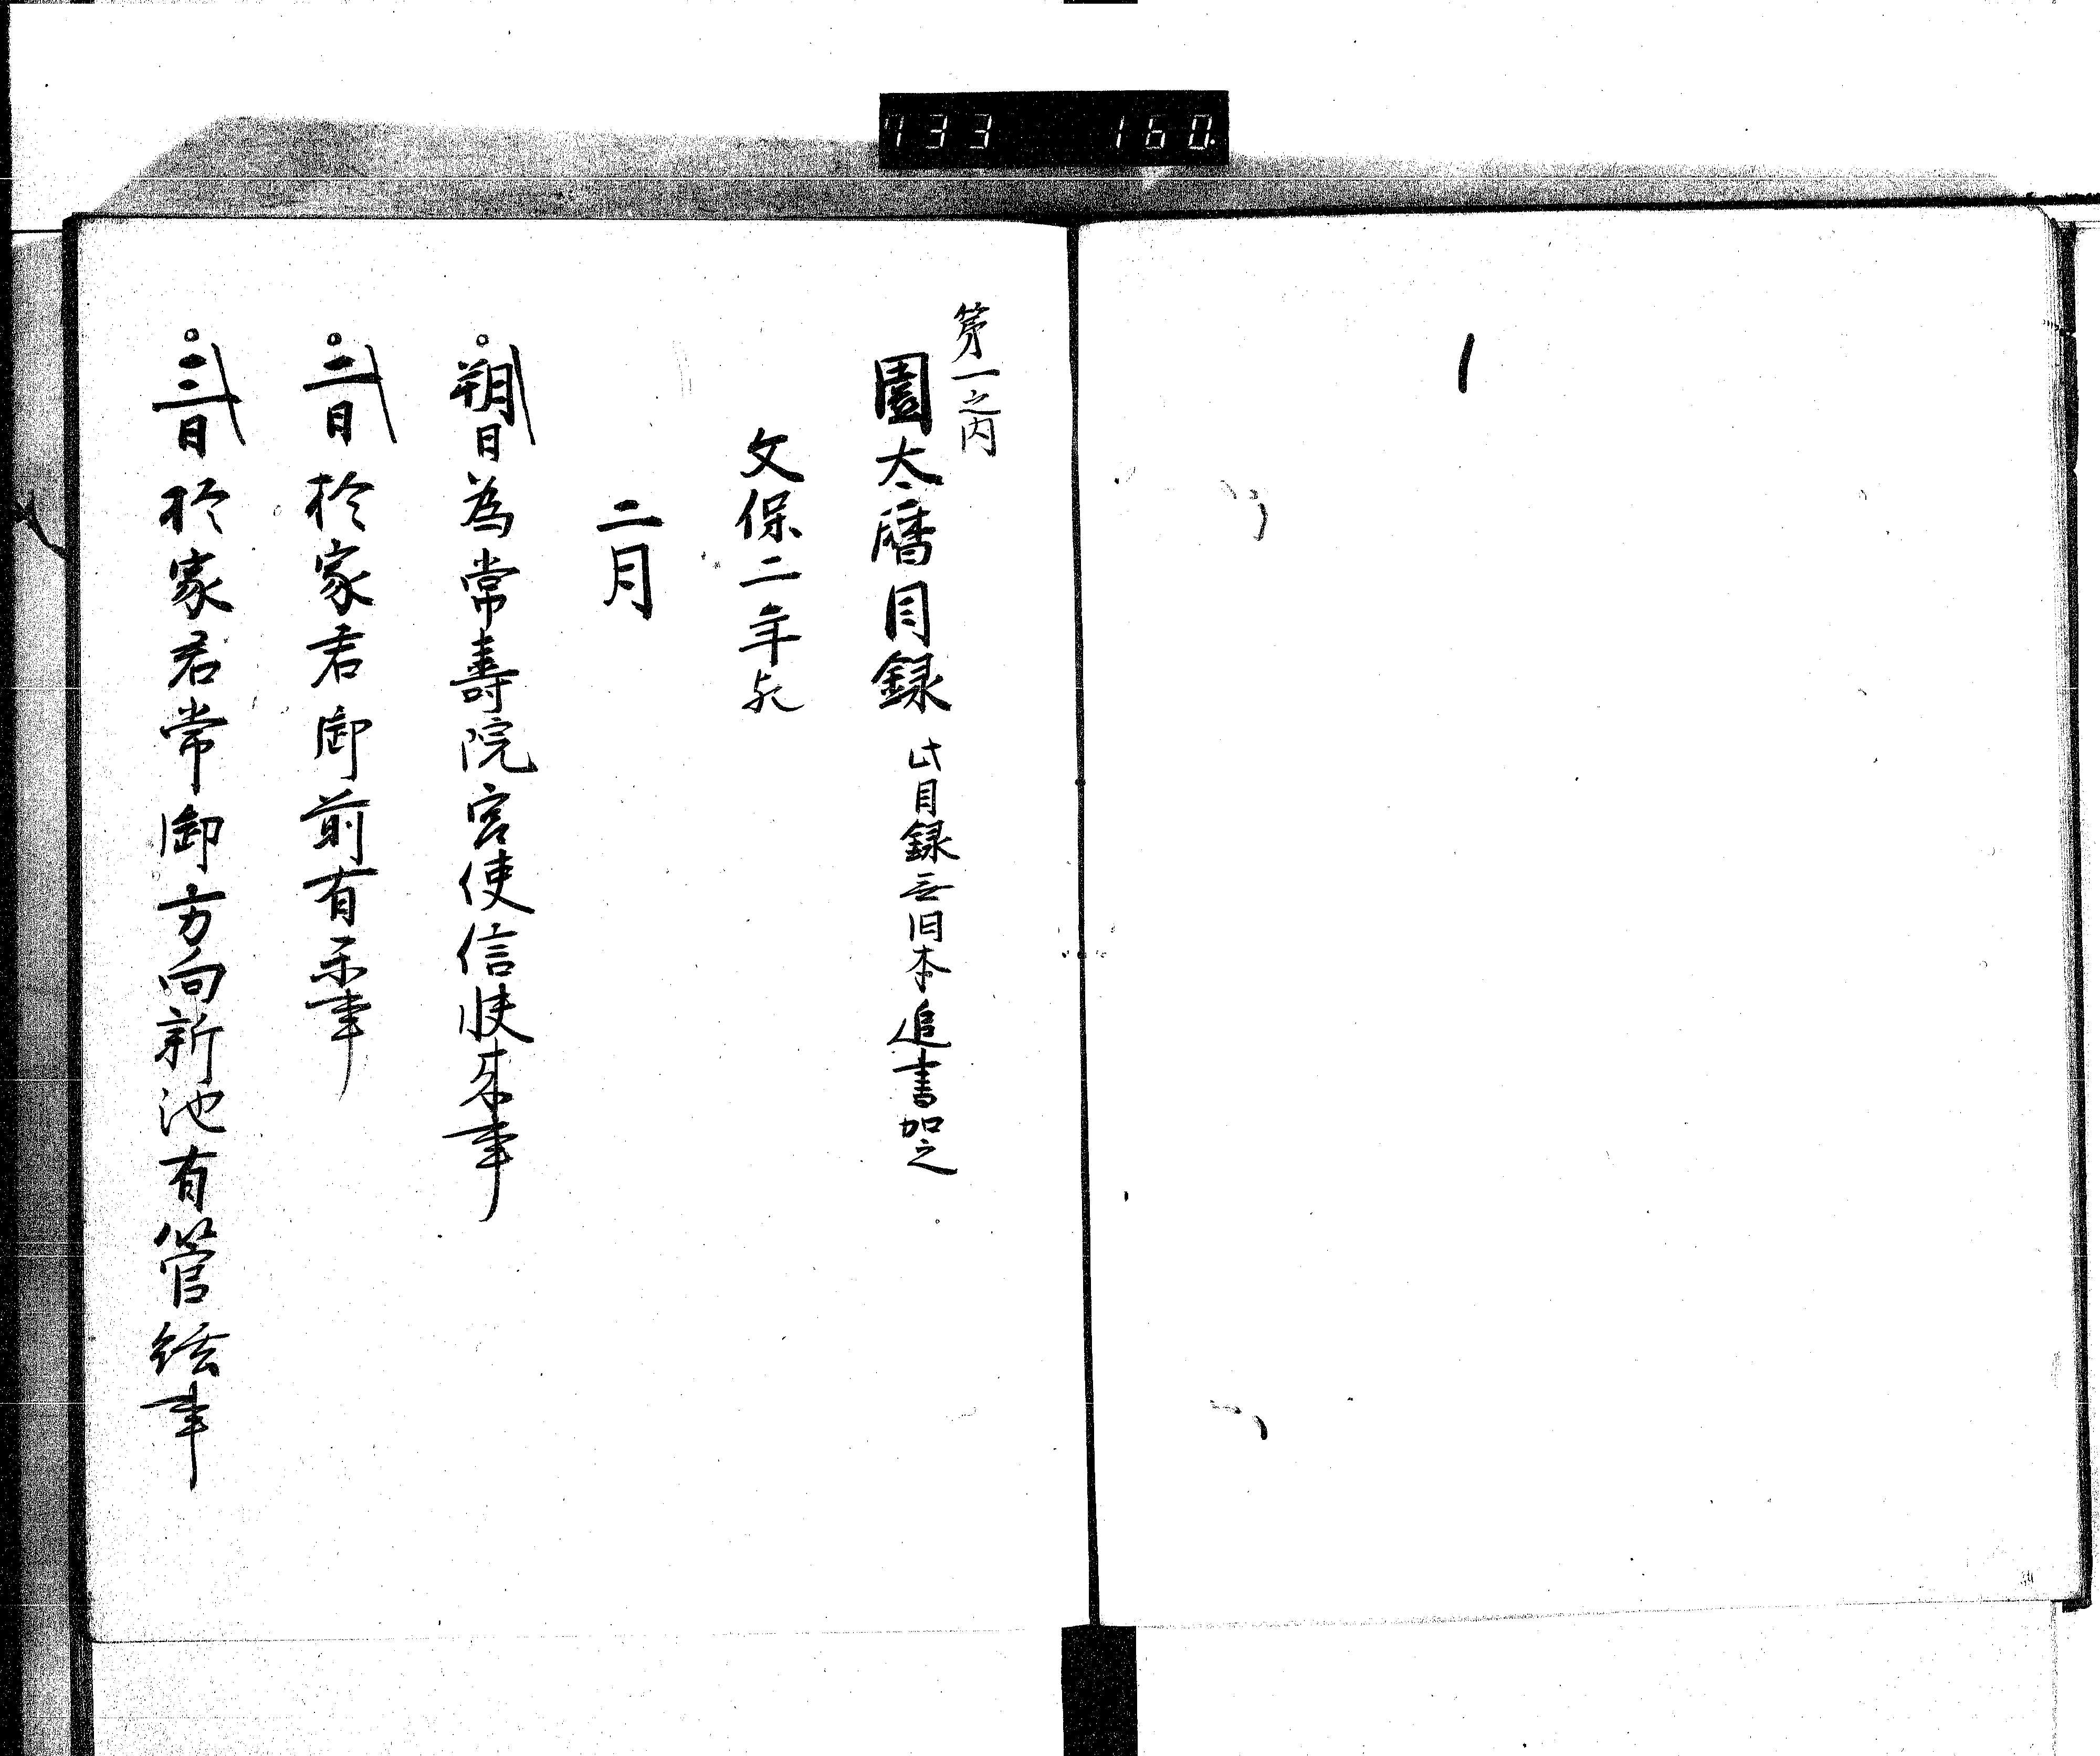 733 160.
第一之内
園太暦目録 此目録無旧本追書加之
文保二年欤
二月
朔日為常壽院宮使信快来事
二日於家君御前有事
三日於家君常御方向新池有管絃事